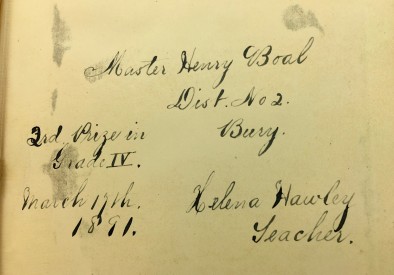 Master Henry Boal
Dist. No 2.
Bury.
2nd Prize in
Grade IV.
March 17th.
1891.
Helena Hawley
Teacher.